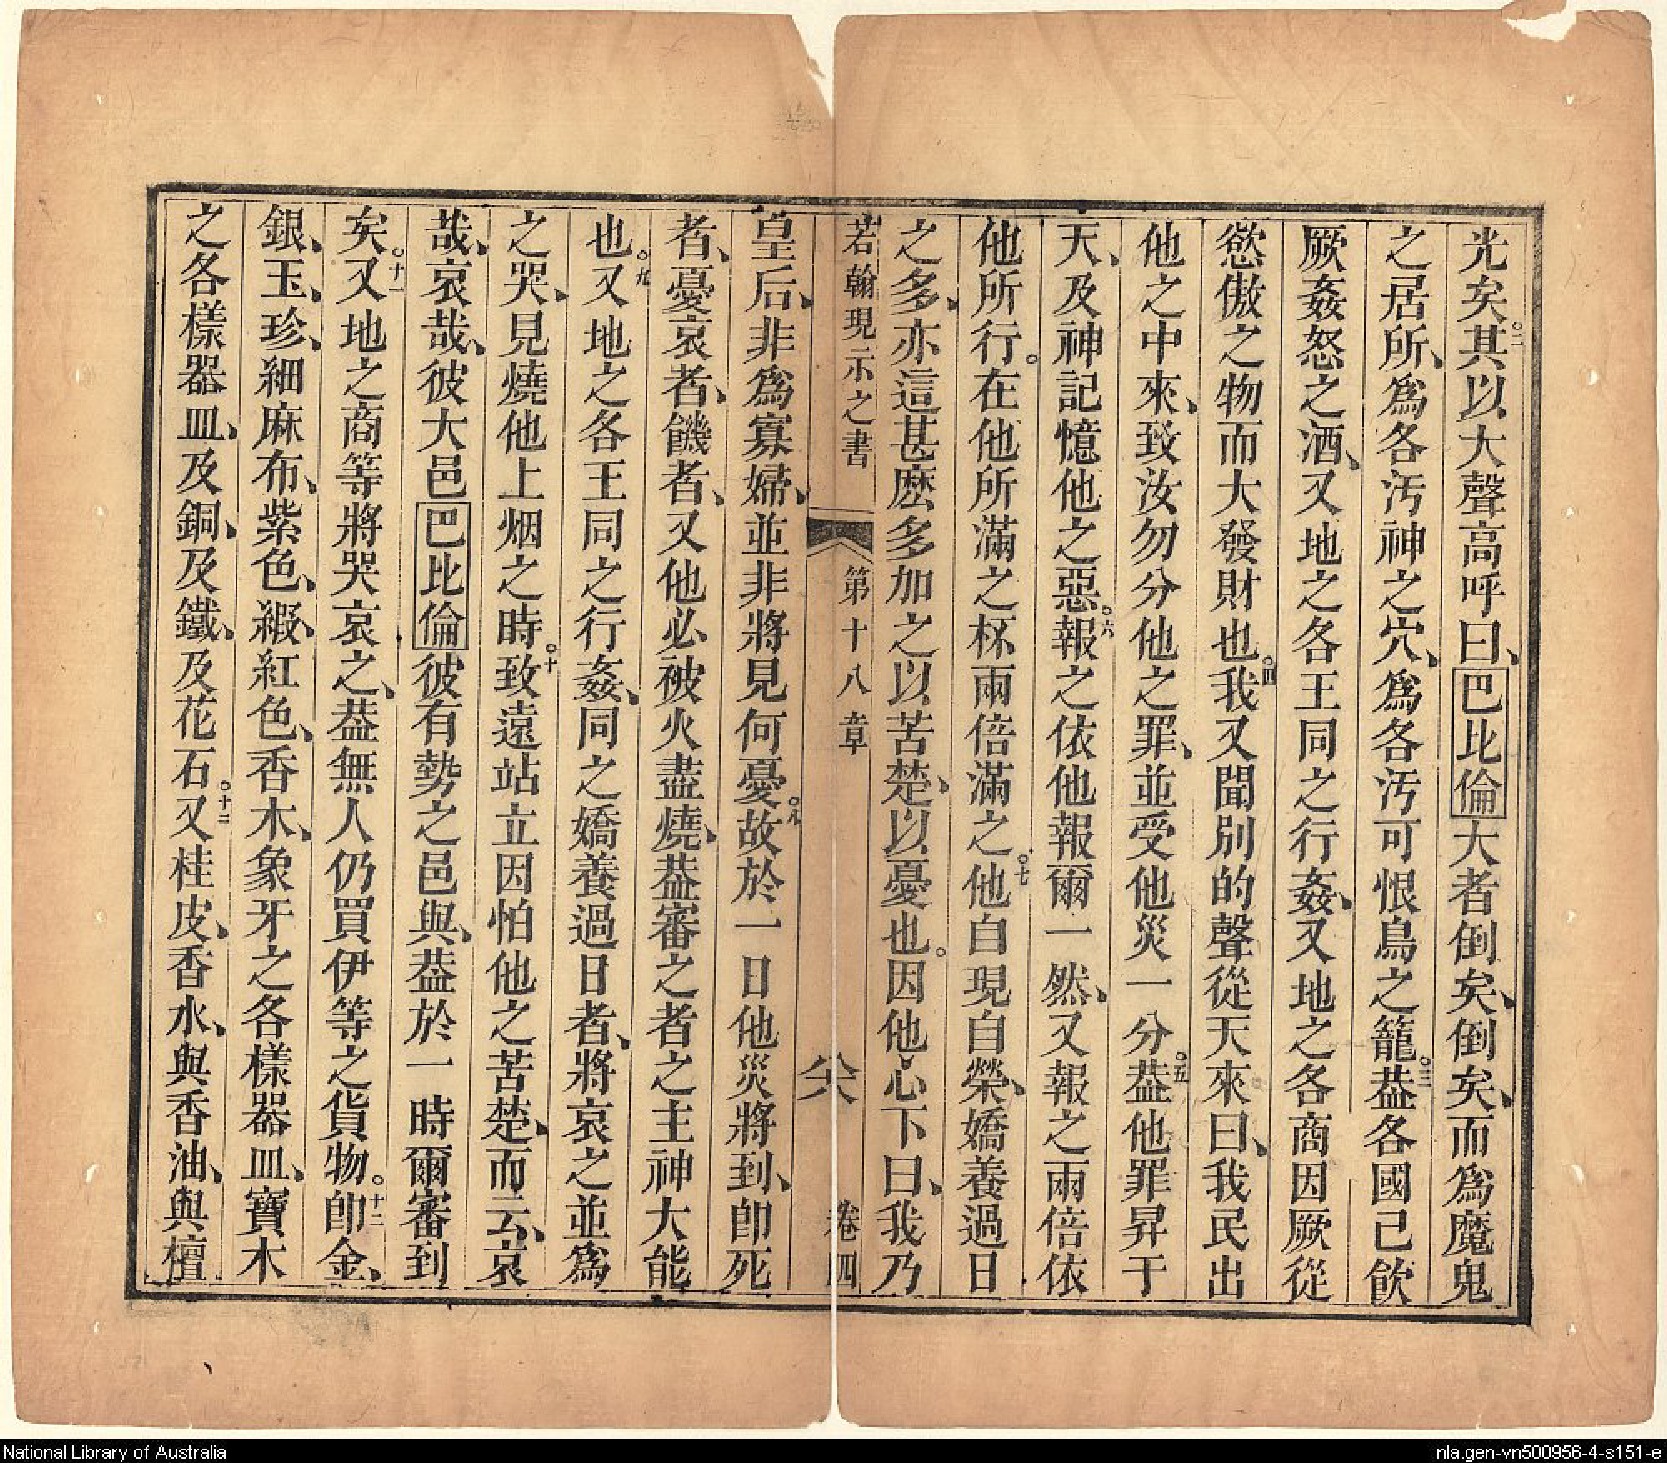 光矣。二其以大聲高呼曰、巴比倫大者倒矣、倒矣、而為魔鬼
之居所、為各污神之穴、為各污可恨鳥之籠。三葢各國已飲
厥姦怒之酒、又地之各王同之行姦、又地之各商因厥從
慾傲之物而大發財也。四我又聞別的聲從天來曰、我民出
他之中來、致汝勿分他之罪、並受他災一分。五葢他罪昇于
天、及神記憶他之惡。六報之依他報爾一然、又報之兩倍依
他所行。在他所滿之杯兩倍滿之。七他自現自榮、嬌養過日
之多、亦這甚麽多加之以苦楚、以憂也。因他心下曰、我乃
若翰現示之書 第十八章 卷四
皇后、非為寡婦、並非將見何憂。八故於一日他災將到、即死
者、憂哀者、饑者、又他必被火盡燒、葢審之者之主神大能
也。九又地之各王同之行姦、同之嬌養過日者、將哀之並為
之哭、見燒他上烟之時。十致遠站立因怕他之苦楚、而云、哀
哉、哀哉、彼大邑巴比倫彼有勢之邑與、葢於一時爾審到
矣。十一又地之商等將哭哀之、葢無人仍買伊等之貨物。十二即金、
銀、玉、珍、細麻布、紫色、緞、紅色、香木、象牙之各樣器皿、寶木
之各樣器皿、及銅、及鐵、及花石。十三又桂皮、香水、與香油、與檀
National Library of Australia
nla.gen-vn500956-4-s151-e